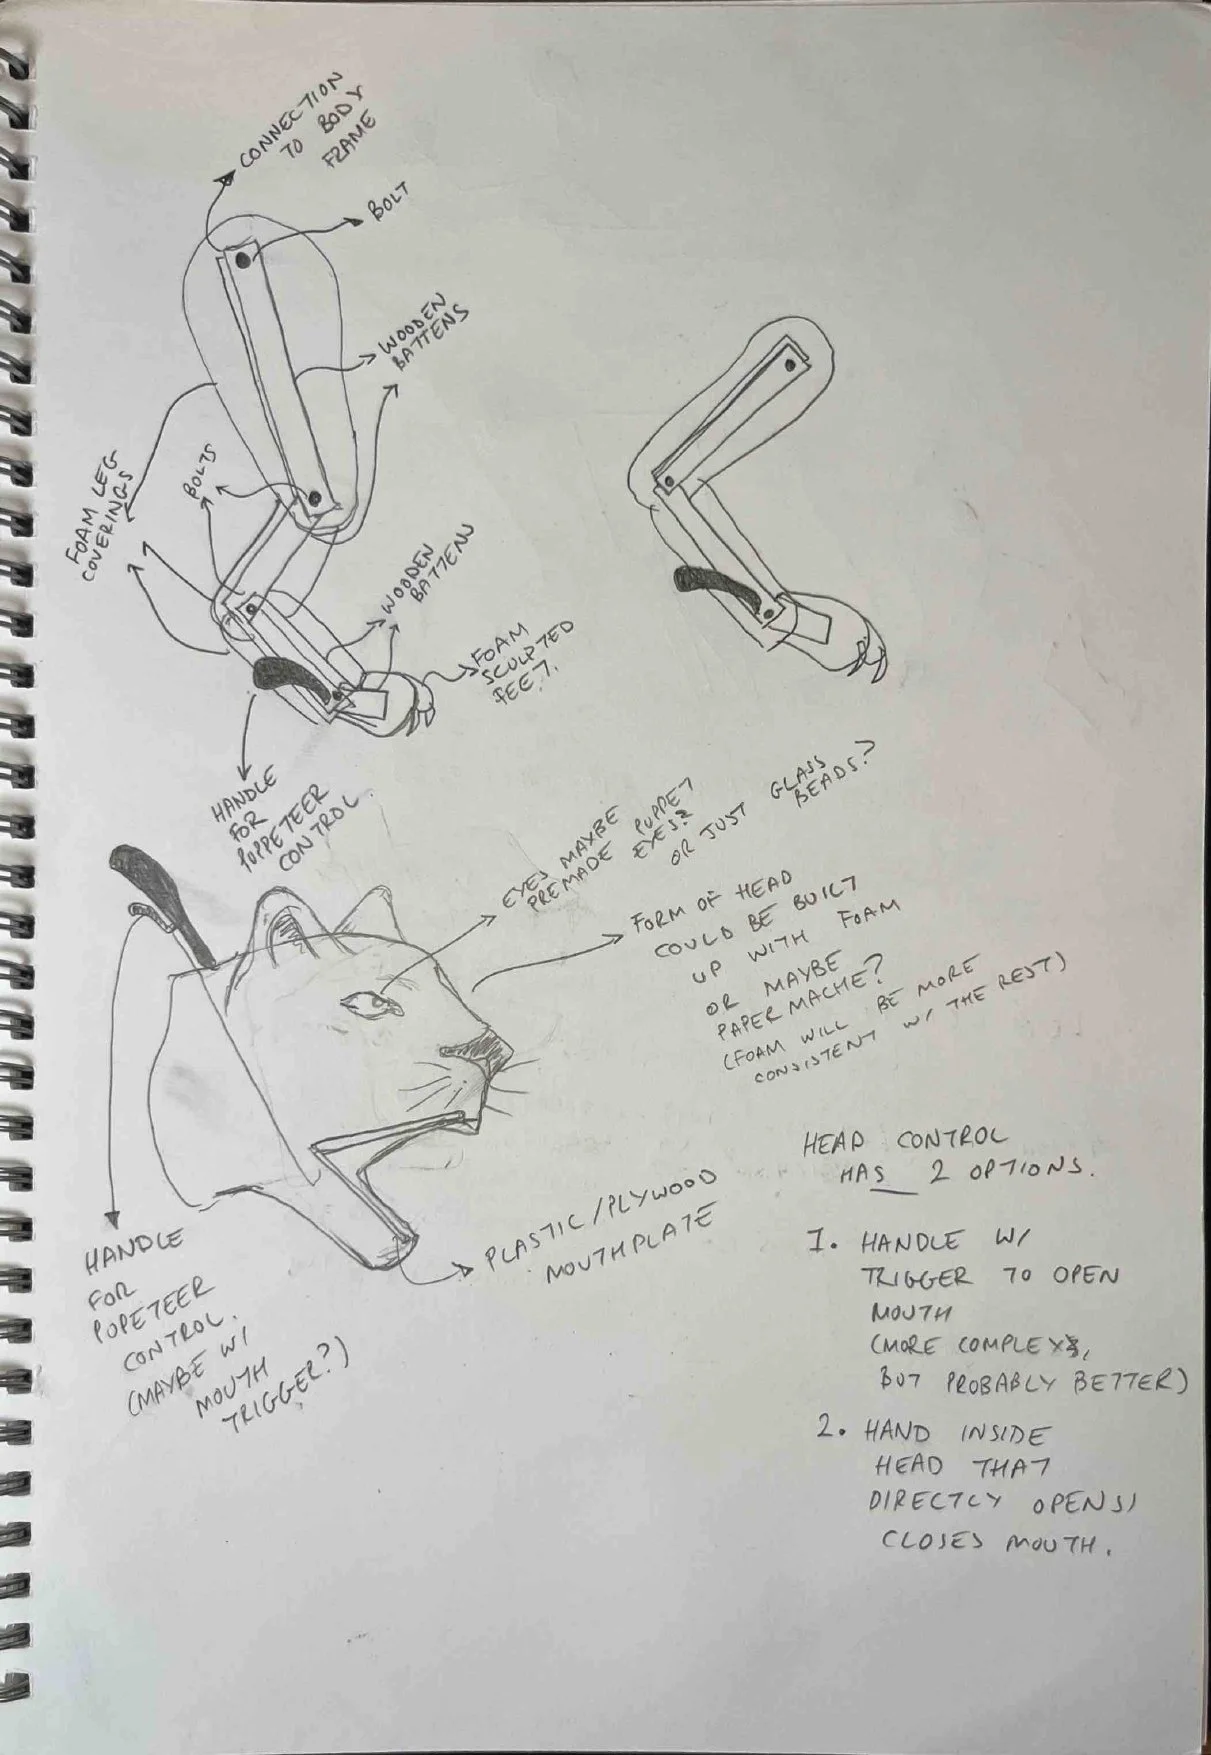 CONNECTION
TO BODY
FRAME
BOLT
WOODEN
BATTENS
BOLTS
FOAM LEG
COVERINGS
WOODEN
BATTENN
FOAM
SCULPTED
FEET.
HANDLE
FOR
PUPPETEER
CONTROL.
EYES MAYBE
PREMADE PUPPET
EYES?
OR JUST GLASS
BEADS?
FORM OF HEAD
COULD BE BUILT
UP WITH FOAM
OR MAYBE
PAPER MACHE?
(FOAM WILL BE MORE
CONSISTENT W/ THE REST)
PLASTIC/PLYWOOD
MOUTHPLATE
HANDLE
FOR
POPETEER
CONTROL.
(MAYBE W/
MOUTH
TRIGGER?)
HEAD CONTROL
HAS 2 OPTIONS.
1. HANDLE W/
TRIGGER TO OPEN
MOUTH
(MORE COMPLEX,
BUT PROBABLY BETTER)
2. HAND INSIDE
HEAD THAT
DIRECTLY OPENS/
CLOSES MOUTH.